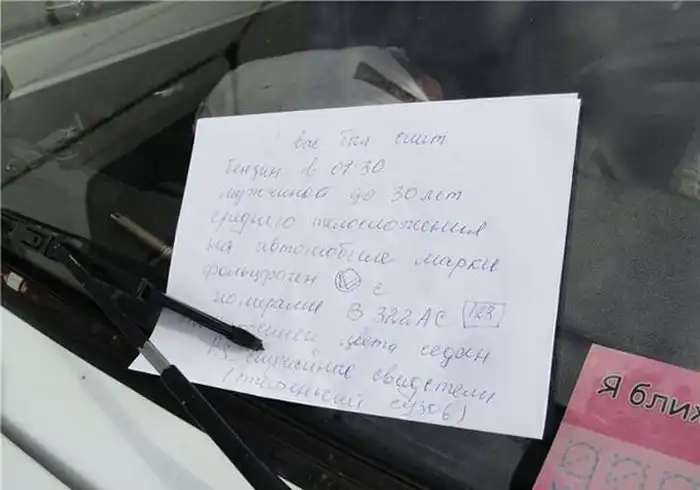 вас был слит
бензин в 01 30
мужчиной до 30 лет
среднего телосложения
на автомобиле марки
фольцваген с
номерами В 322 АС 123
цвета седан
P.S. случайные свидетели
(старенький кузов)
Я ближ